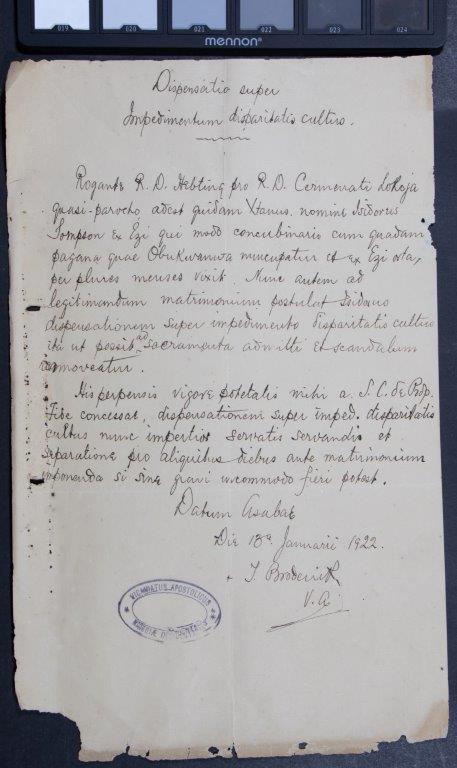 019 020 021 022 023 024
mennon
Dispensatio super
Impedimentum disparitatis cultus.
Rogante R. D. Hebting pro R. D. Cermenati Lokoja
quasi-parocho adest quidam Xtanus nomine Isidorus
Tompson ex Ezi qui modo concubinario cum quadam
pagana quae Obukwanwa nuncupatur et ex Ezi orta,
per plures menses vixit. Nunc autem ad
legitimandum matrimonium postulat Isidorus
dispensationem super impedimento disparitatis cultus
ita ut possit ad sacramenta admitti et scandalum
removeatur.
His perpensis vigore potetatis mihi a S. C. de Prop.
Fide concessae, dispensationem super imped. disparitatis
cultus nunc impertior servatis servandis et
separatione pro aliquibus diebus ante matrimonium
imponenda si sine gravi incommodo fieri potest.
Datum Asabae
Die 18a Januarii 1922.
+ T. Broderick
V. A.
VICARIATUS APOSTOLICUS
NIGERIAE OCCIDENTALIS